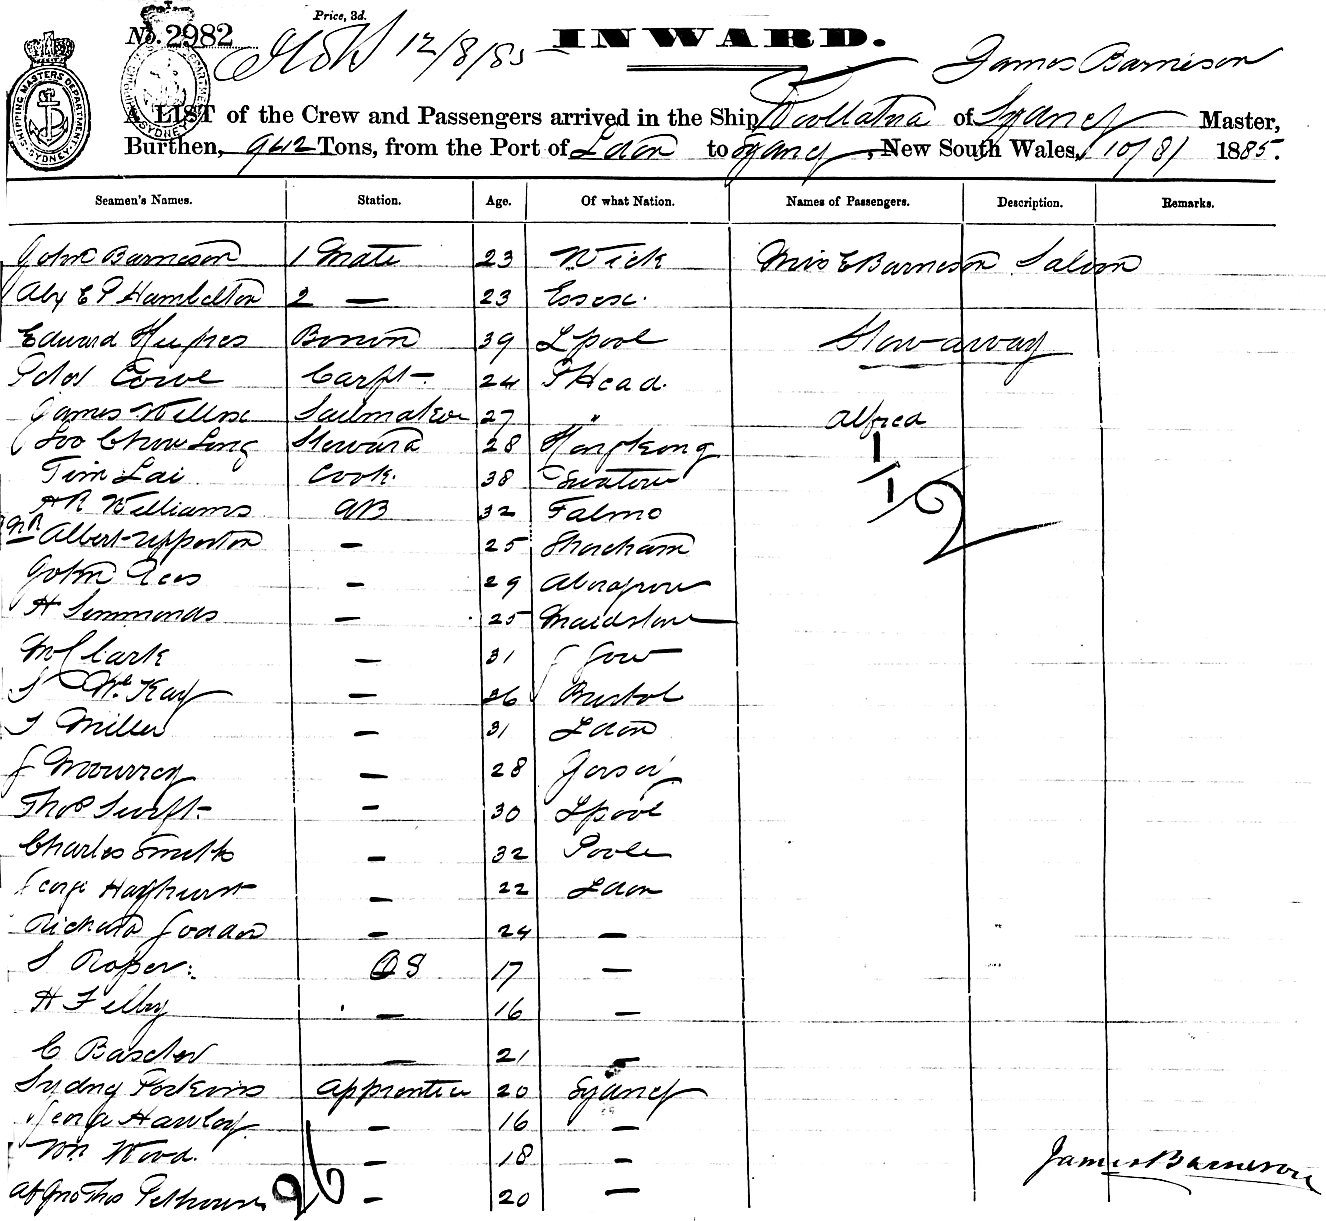 Price, 3d.
No. 2982 12/8/85 INWARD.
James Barneson
A LIST of the Crew and Passengers arrived in the Ship Woollahra of Sydney Master,
Burthen, 942 Tons, from the Port of Ldon to Sydney, New South Wales, 10/8/ 1885.
SHIPPING MASTERS DEPARTMENT SYDNEY
Seamen's Names. Station. Age. Of what Nation. Names of Passengers. Description. Remarks.
John Barneson 1 Mate 23 Wick Miss E Barneson Saloon
Alex E P Hambelton 2 — 23 Essex.
Edward Hughes Bosun 39 Lpool Stowaway
Peter Cowe Carpt 24 PHead.
James Sailmaker 27 " Alfred
Loo Chow Long Steward 28 Hongkong 1
Tim Lai Cook. 38 Swatow /1
H R Williams AB 32 Falmo 2
Albert Upperton — 25 Shoreham
John Rees — 29 
H Simmonds — 25 Maidstone
Wm Clark — 31 Ggow
S McKay — 36 Bristol
T Miller — 31 Ldon
J Mourrey — 28 Jersey
Thos Swift — 30 Lpool
Charles Smith — 32 Poole
George Hayhurst — 22 Ldon
Richard Goddon — 24 —
S Roper: OS 17 —
H Felby — 16 —
C Bascher — 21 —
Sydney Perkins Apprentice 20 Sydney
George Hawley — 16 —
Wm Wood. — 18 — James Barneson
Pethouse 26 — 20 —